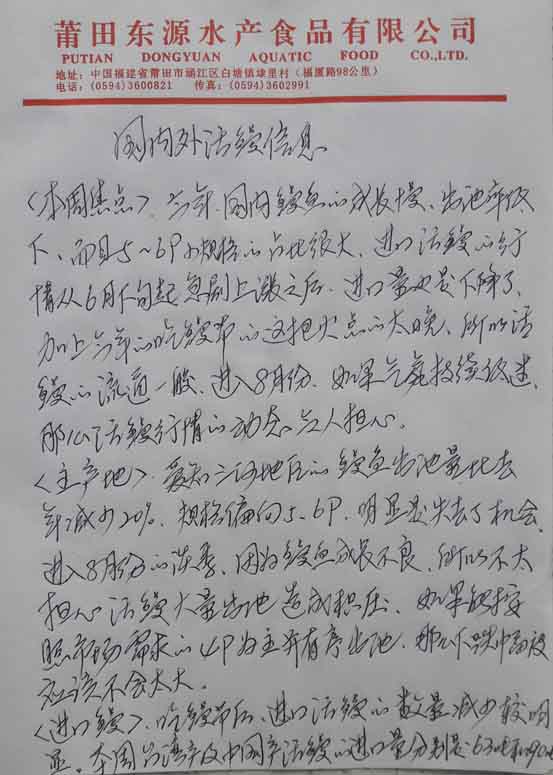 莆田东源水产食品有限公司
PUTIAN DONGYUAN AQUATIC FOOD CO.,LTD.
地址：中国福建省莆田市涵江区白塘镇埭里村（福厦路98公里）
电话：(0594)3600821 传真：(0594)3602991
国内外活鳗信息
〈本周焦点〉、今年、国内鳗鱼的成长慢、出池率低
下、而且5~6P的规格的占比很大、进口活鳗的行
情从6月下旬起急剧上涨之后、进口量也是下降了、
加上今年的吃鳗节的这把火点的太晚、所以活
鳗的流通一般、进入8月份、如果气氛持续低迷、
那么活鳗行情的动态令人担心。
〈主产地〉、爱知三河地区的鳗鱼出池量比去
年减少20%、规格偏向5、6P、明显是失去了机会、
进入8月份的淡季、因为鳗鱼成长不良、所以不太
担心活鳗大量出池造成积压、如果能按
照市场需求的4P为主并有序出池、那么下跌
应该不会太大。
〈进口鳗〉、吃鳗节后、进口活鳗的数量减少较明
显、本周台湾产及中国产活鳗的进口量分别是63吨和